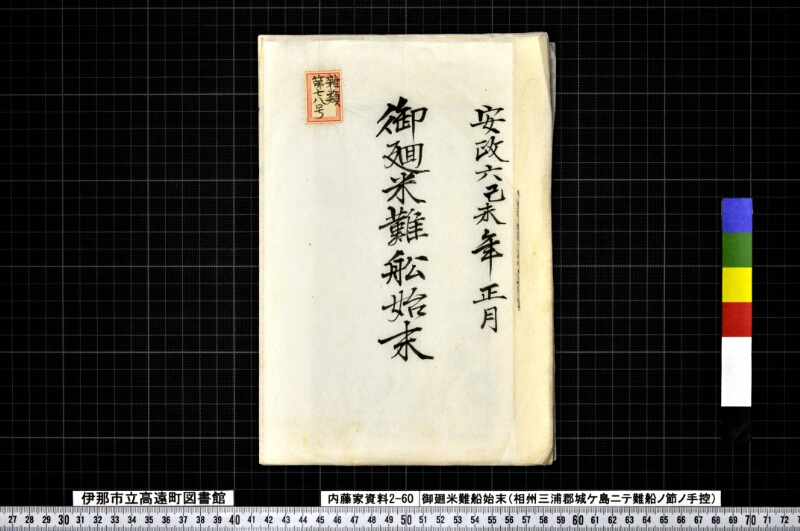 安政六己未年正月
御廻米難舩始末
雑類
第七八号
伊那市立高遠町図書館
内藤家資料2-60 御廻米難船始末(相州三浦郡城ケ島ニテ難船ノ節ノ手控)
27 28 29 30 31 32 33 34 35 36 37 38 39 40 41 42 43 44 45 46 47 48 49 50 51 52 53 54 55 56 57 58 59 60 61 62 63 64 65 66 67 68 69 70 71 72